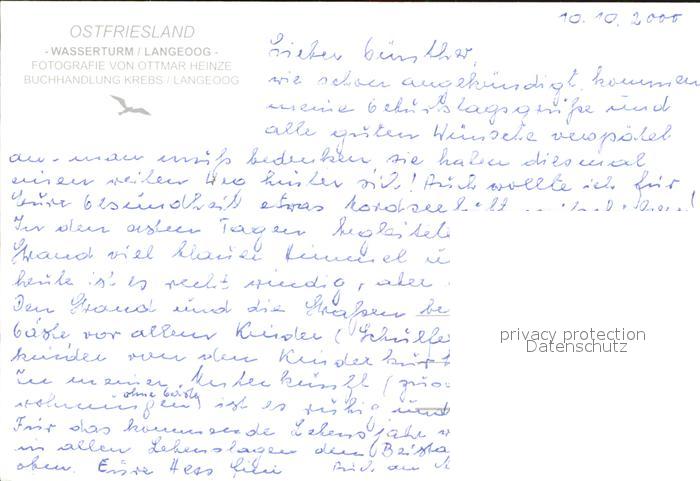 10.10.2000
OSTFRIESLAND
- WASSERTURM / LANGEOOG -
FOTOGRAFIE VON OTTMAR HEINZE
BUCHHANDLUNG KREBS / LANGEOOG
Lieber Günther,
wie schon angekündigt, kommen
meine Geburtstagsgrüße und
alle guten Wünsche verspätet
an - man muß bedenken sie haben diesmal
einen weiten Weg hinter sich! Auch wollte ich für
Eure Gesundheit etwas
In den ersten Tagen begleitete
Strand viel blauer Himmel u
heute ist es recht windig, aber
Den Strand und die Straßen be
Gäste vor allem Kinder (
kinder von den Kinder
In meiner Unterkünft
ohne Gäste
ist es ruhig und
Für das kommende Lebensjahr
in allen Lebenslagen den Beista
oben. Eure
privacy protection
Datenschutz